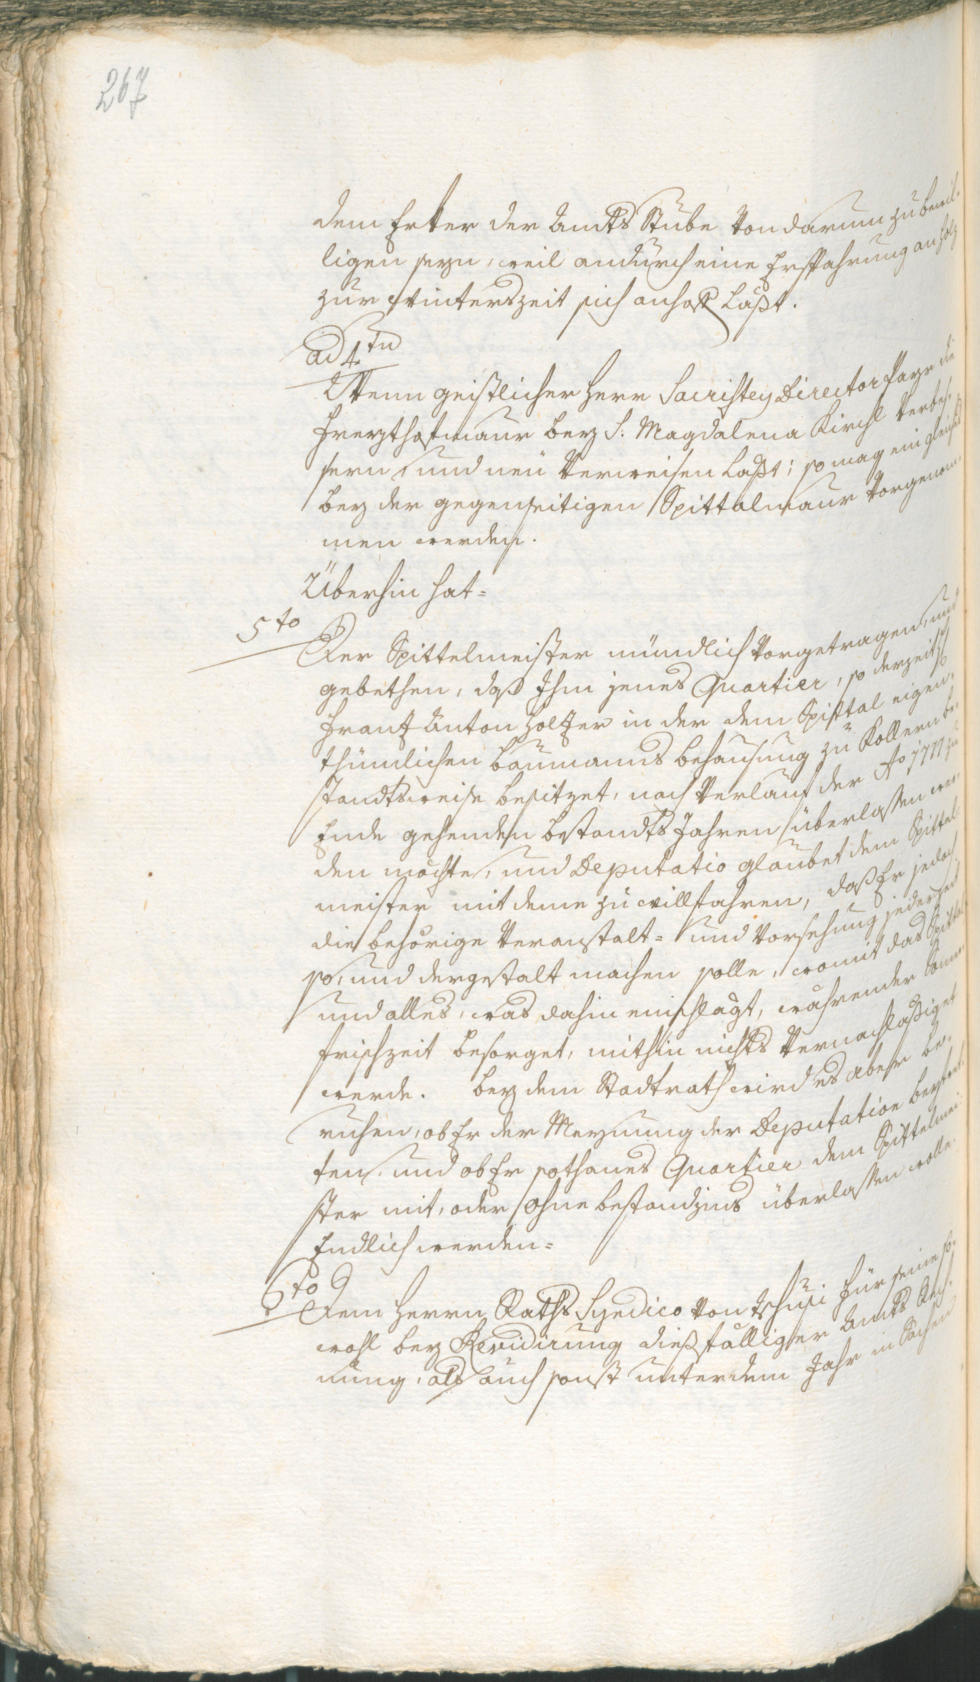 267
dem Erker der Amts Stube von darum zu bewil-
ligen seyn, weil andurch eine Ersparung an Holz
zur Winterszeit sich anhofft laßt.
ad 4tn
Wenn geistlicher Herr Sacristey Director Payr die
Freythofmaur bey S. Magdalena Kirchl verbes-
sern, und neu verweisen laßt; so mag ein gleiches
bey der gegenseitigen Spittalmaur vorgenom-
men werden.
Überhin hat=
5to
Der Spittelmeister mündlich vorgetragen, und
gebethen, daß Ihm jenes Quartier, so derzeit
Frantz Anton Holtzer in der dem Spittal eigen-
thümlichen Baumanns behausung zu Kollern be-
standtsweise besitzet, nach Verlauf der Ao 1777 zu
Ende gehenden bestandts Jahren überlassen wer-
den möchte, und Deputatio glaubet dem Spittel-
meister mit deme zu willfahren, daß Er jedoch
die behörige Veranstalt= und Vorsehung jederzeit
so, und dergestalt machen solle, womit das Spittal
und alles, was dahin einschlagt, währender Som̅er-
frischzeit besorget, mithin nichts vernachlaßiget
werde. bey dem Stadtrath wird es aber be-
ruhen, ob Er der Meynung der Deputation beytret-
ten, und ob Er sothanes Quartier dem Spittelmei-
ster mit, oder ohne bestandzins überlassen wolle.
Endlich werden=
6to
Dem Herrn Raths Syndico von Tschusi für seine so-
wohl bey Revidirung dießfälliger Amts Rech-
nung, als auch sonst unter dem Jahr in Sachen